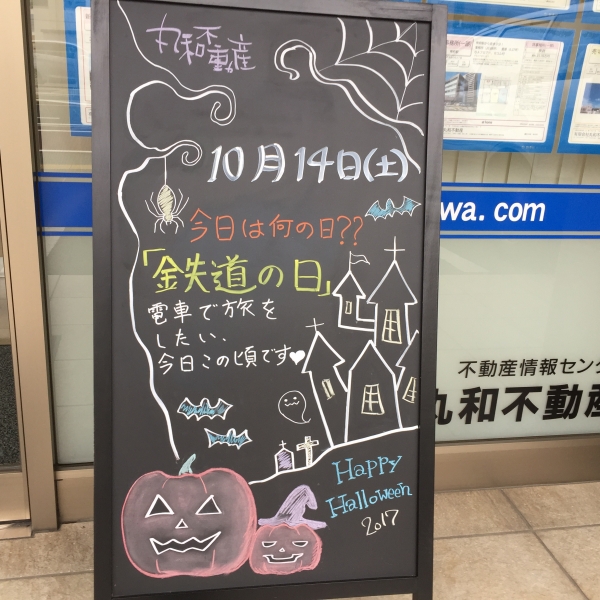 丸和不動産
10月14日(土)
今日は何の日??
「鉄道の日」
電車で旅を
したい、
今日この頃です♥
Happy
Halloween
2017
wa.com
不動産情報セン
丸和不動産